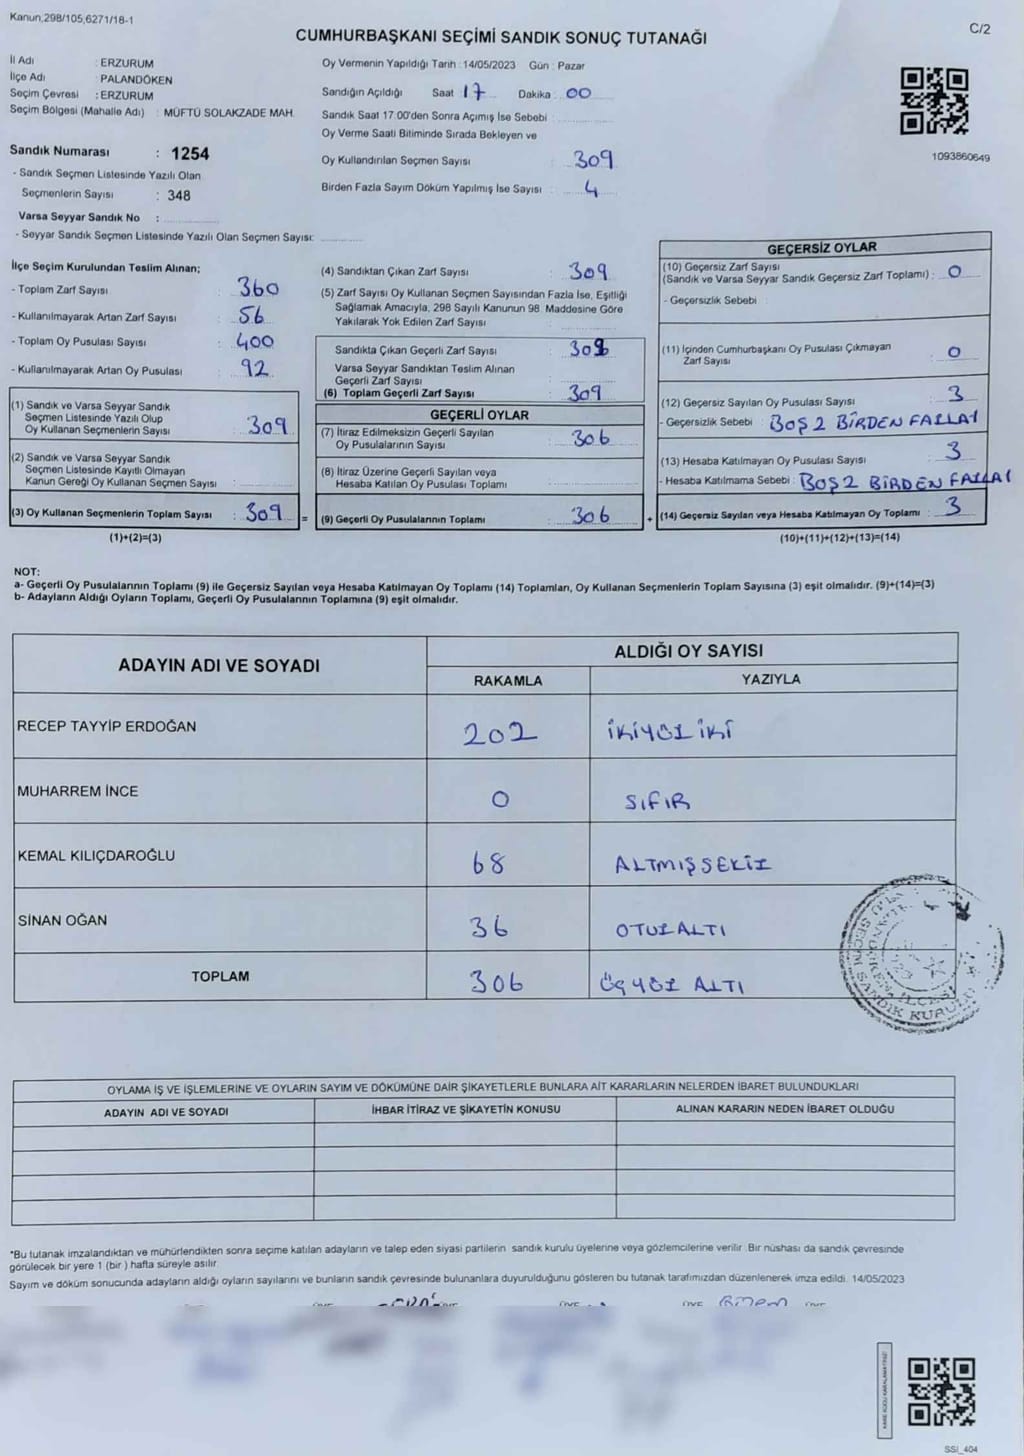 Kanun;298/105,6271/18-1
C/2
CUMHURBAŞKANI SEÇİMİ SANDIK SONUÇ TUTANAĞI
İl Adı : ERZURUM
İlçe Adı : PALANDÖKEN
Seçim Çevresi : ERZURUM
Seçim Bölgesi (Mahalle Adı) : MÜFTÜ SOLAKZADE MAH.
Sandık Numarası : 1254
- Sandık Seçmen Listesinde Yazılı Olan
Seçmenlerin Sayısı : 348
Varsa Seyyar Sandık No :
- Seyyar Sandık Seçmen Listesinde Yazılı Olan Seçmen Sayısı:
Oy Vermenin Yapıldığı Tarih : 14/05/2023 Gün : Pazar
Sandığın Açıldığı Saat 17 Dakika : 00
Sandık Saat 17.00'den Sonra Açımış İse Sebebi :
Oy Verme Saati Bitiminde Sırada Bekleyen ve
Oy Kullandırılan Seçmen Sayısı : 309
Birden Fazla Sayım Döküm Yapılmış İse Sayısı : 4
1093860649
İlçe Seçim Kurulundan Teslim Alınan;
- Toplam Zarf Sayısı : 360
- Kullanılmayarak Artan Zarf Sayısı : 56
- Toplam Oy Pusulası Sayısı : 400
- Kullanılmayarak Artan Oy Pusulası : 92
(1) Sandık ve Varsa Seyyar Sandık
Seçmen Listesinde Yazılı Olup
Oy Kullanan Seçmenlerin Sayısı : 309
(2) Sandık ve Varsa Seyyar Sandık
Seçmen Listesinde Kayıtlı Olmayan
Kanun Gereği Oy Kullanan Seçmen Sayısı :
(3) Oy Kullanan Seçmenlerin Toplam Sayısı : 309 =
(1)+(2)=(3)
(4) Sandıktan Çıkan Zarf Sayısı : 309
(5) Zarf Sayısı Oy Kullanan Seçmen Sayısından Fazla İse, Eşitliği
Sağlamak Amacıyla, 298 Sayılı Kanunun 98. Maddesine Göre
Yakılarak Yok Edilen Zarf Sayısı :
Sandıkta Çıkan Geçerli Zarf Sayısı : 309
Varsa Seyyar Sandıktan Teslim Alınan
Geçerli Zarf Sayısı :
(6) Toplam Geçerli Zarf Sayısı : 309
GEÇERLİ OYLAR
(7) İtiraz Edilmeksizin Geçerli Sayılan
Oy Pusulalarının Sayısı : 306
(8) İtiraz Üzerine Geçerli Sayılan veya
Hesaba Katılan Oy Pusulası Toplamı :
(9) Geçerli Oy Pusulalarının Toplamı : 306 +
GEÇERSİZ OYLAR
(10) Geçersiz Zarf Sayısı
(Sandık ve Varsa Seyyar Sandık Geçersiz Zarf Toplamı) : 0
- Geçersizlik Sebebi :
(11) İçinden Cumhurbaşkanı Oy Pusulası Çıkmayan
Zarf Sayısı : 0
(12) Geçersiz Sayılan Oy Pusulası Sayısı : 3
- Geçersizlik Sebebi : BOŞ 2 BİRDEN FAZLA 1
(13) Hesaba Katılmayan Oy Pusulası Sayısı : 3
- Hesaba Katılmama Sebebi : BOŞ 2 BİRDEN FAZLA 1
(14) Geçersiz Sayılan veya Hesaba Katılmayan Oy Toplamı : 3
(10)+(11)+(12)+(13)=(14)
NOT:
a- Geçerli Oy Pusulalarının Toplamı (9) ile Geçersiz Sayılan veya Hesaba Katılmayan Oy Toplamı (14) Toplamları, Oy Kullanan Seçmenlerin Toplam Sayısına (3) eşit olmalıdır. (9)+(14)=(3)
b- Adayların Aldığı Oyların Toplamı, Geçerli Oy Pusulalarının Toplamına (9) eşit olmalıdır.
ADAYIN ADI VE SOYADI ALDIĞI OY SAYISI
RAKAMLA YAZIYLA
RECEP TAYYİP ERDOĞAN 202 İKİYÜZ İKİ
MUHARREM İNCE 0 SIFIR
KEMAL KILIÇDAROĞLU 68 ALTMIŞSEKİZ
SİNAN OĞAN 36 OTUZALTI
TOPLAM 306 ÜÇYÜZ ALTI
SEÇİM SANDIK KURULU
İLÇESİ
OYLAMA İŞ VE İŞLEMLERİNE VE OYLARIN SAYIM VE DÖKÜMÜNE DAİR ŞİKAYETLERLE BUNLARA AİT KARARLARIN NELERDEN İBARET BULUNDUKLARI
ADAYIN ADI VE SOYADI İHBAR İTİRAZ VE ŞİKAYETİN KONUSU ALINAN KARARIN NEDEN İBARET OLDUĞU
*Bu tutanak imzalandıktan ve mühürlendikten sonra seçime katılan adayların ve talep eden siyasi partilerin sandık kurulu üyelerine veya gözlemcilerine verilir. Bir nüshası da sandık çevresinde
görülecek bir yere 1 (bir ) hafta süreyle asılır.
Sayım ve döküm sonucunda adayların aldığı oyların sayılarını ve bunların sandık çevresinde bulunanlara duyurulduğunu gösteren bu tutanak tarafımızdan düzenlenerek imza edildi. 14/05/2023
SSİ_404